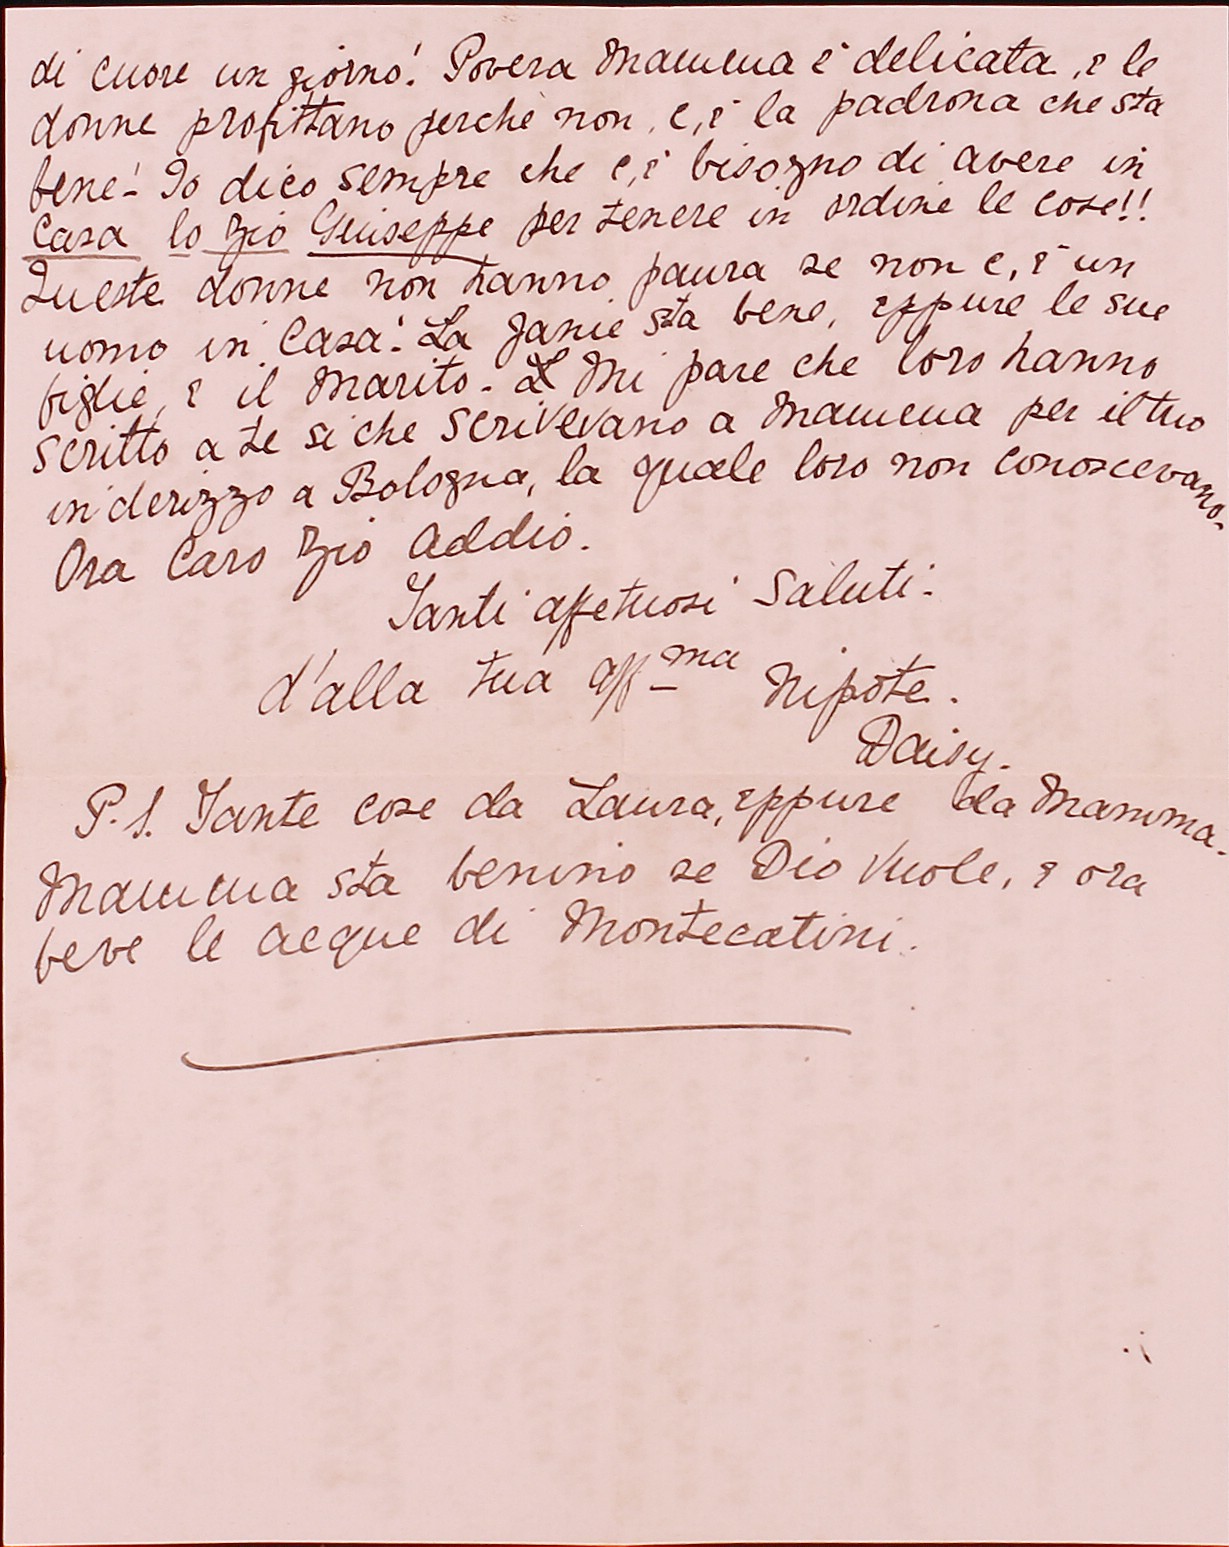 di cuore un giorno! Povera Mamma è delicata, e le
donne profittano perchè non, c,è la padrona che sta
bene! Io dico sempre che c,è bisogno di avere in
Casa lo Zio Giuseppe per tenere in ordine le cose!!
Queste donne non hanno paura se non c,è un
uomo in Casa! La Janie sta bene, eppure le sue
figlie, e il Marito. Mi pare che loro hanno
scritto a te si che scrivevano a Mamma per il tuo
in derizzo a Bologna, la quale loro non conoscevano.
Ora Caro Zio addio.
Tanti affetuosi Saluti.
d'alla tua aff ma Nipote.
Daisy.
P.S. Tante cose da Laura, eppure da Mamma.
Mamma sta benino se Dio Vuole, e ora
beve le acque di Montecatini.